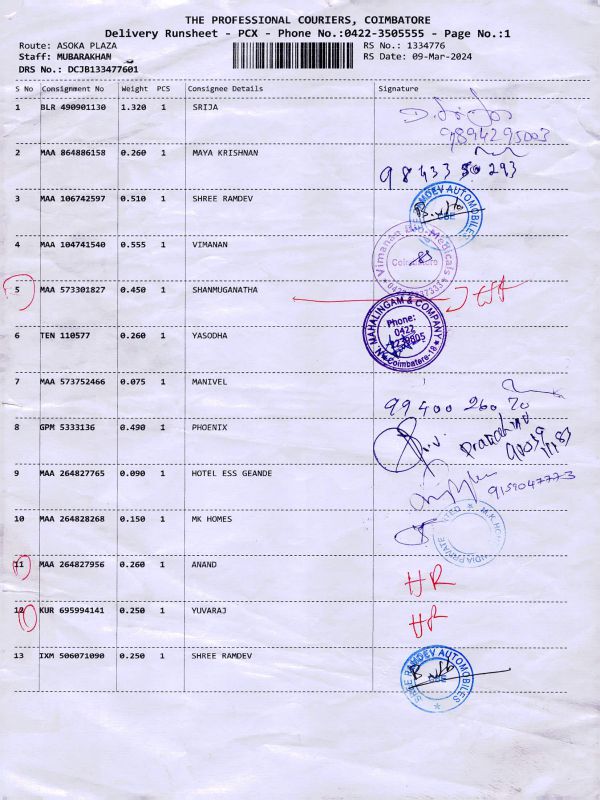 THE PROFESSIONAL COURIERS, COIMBATORE
Delivery Runsheet - PCX - Phone No.:0422-3505555 - Page No.:1
Route: ASOKA PLAZA
RS No.: 1334776
Staff: MUBARAKHAN
RS Date: 09-Mar-2024
DRS No.: DCJB133477601
S No Consignment No Weight PCS Consignee Details Signature
1 BLR 490901130 1.320 1 SRIJA
9894295003
2 MAA 864886158 0.260 1 MAYA KRISHNAN
98433 50293
3 MAA 106742597 0.510 1 SHREE RAMDEV
SHREE RAMDEV AUTOMOBILES
CBE
4 MAA 104741540 0.555 1 VIMANAN
Coimbatore
5 MAA 573301827 0.450 1 SHANMUGANATHA
MAHALINGAM & COMPANY
Phone:
0422
Coimbatore-18
6 TEN 110577 0.260 1 YASODHA
7 MAA 573752466 0.075 1 MANIVEL
99400 260 70
8 GPM 5333136 0.490 1 PHOENIX
9 MAA 264827765 0.090 1 HOTEL ESS GEANDE
9159047773
10 MAA 264828268 0.150 1 MK HOMES
11 MAA 264827956 0.260 1 ANAND
HR
12 KUR 695994141 0.250 1 YUVARAJ
HR
13 IXM 506071090 0.250 1 SHREE RAMDEV
SHREE RAMDEV AUTOMOBILES
CBE